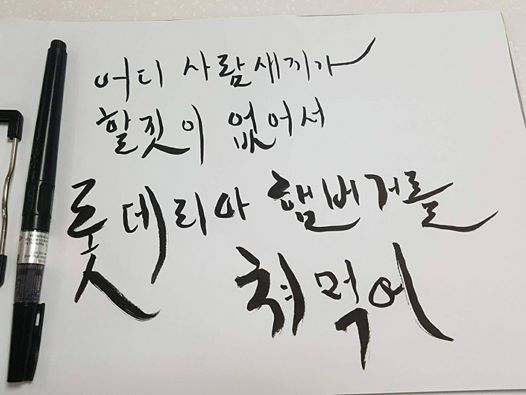 어디 사람새끼가
할짓이 없어서
롯데리아 햄버거를
쳐먹어